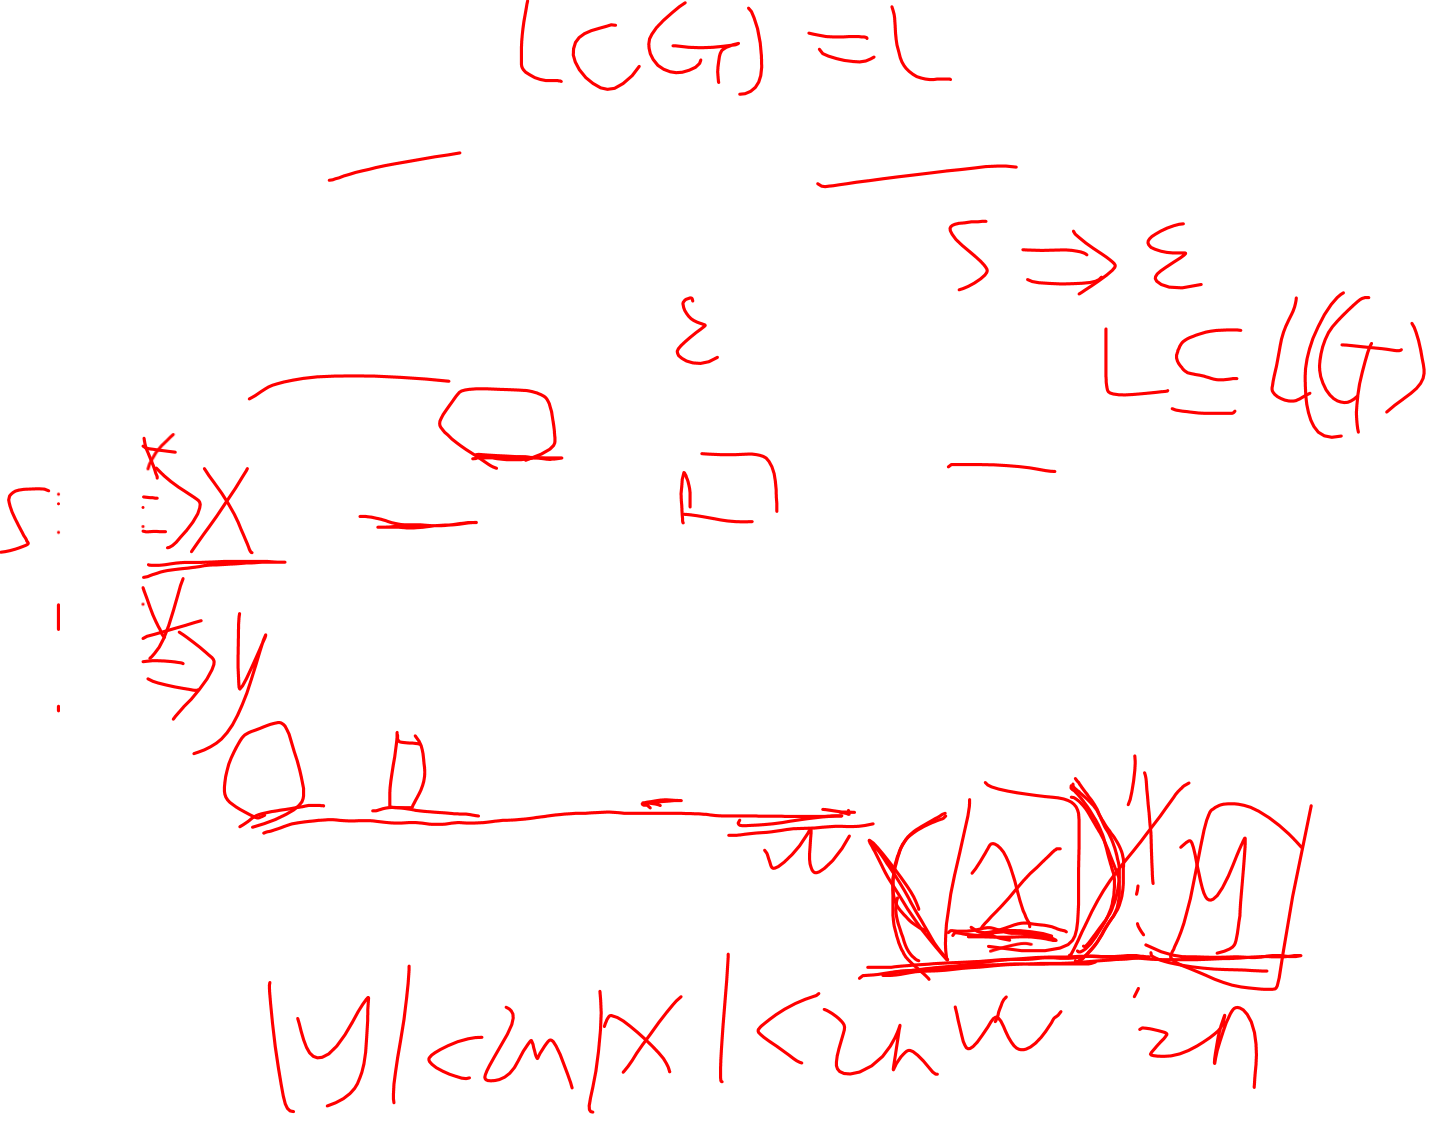 L(G) = L
S ⇒ ε
ε
L ⊆ L(G)
S ⇒* X
⇒* y
w (x) y
|y| < 2n |x| < 2n w = 2n